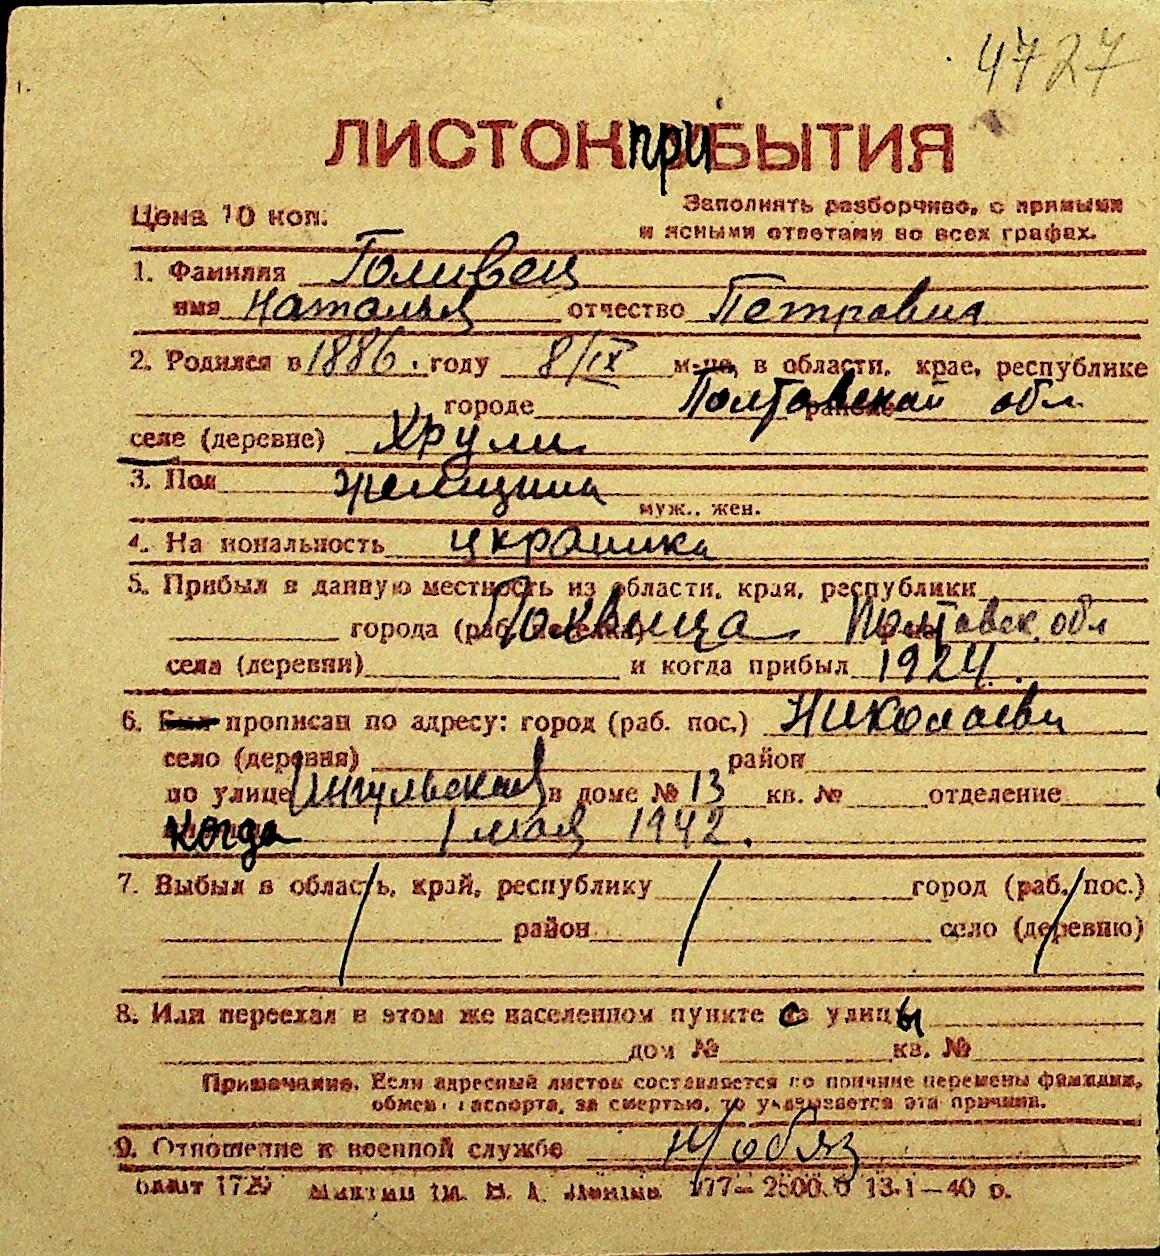 4727
ЛИСТОК ПРИБЫТИЯ
Цена 10 коп.
Заполнять разборчиво, с прямыми
и ясными ответами во всех графах.
1. Фамилия Голивец
имя Наталья отчество Петровна
2. Родился в 1886. году 8/IX м-це, в области, крае, республике
городе Полтавской обл
селе (деревне) Хрули
3. Пол женщина
муж., жен.
4. На иональность украинка
5. Прибыл в данную местность из области, края, республики
города (раб. поселка) Полтавск. обл
села (деревни) и когда прибыл 1924.
6. Был прописан по адресу: город (раб. пос.) Николаеви
село (деревня) район
по улице Ингульская в доме № 13 кв. № отделение
когда 1 мая 1942.
7. Выбыл в область, край, республику город (раб. пос.)
район село (деревню)
8. Или переехал в этом же населенном пункте с улицы
дом № кв. №
Примечание. Если адресный листок составляется по причине перемены фамилии,
обмена паспорта, за смертью, то указывается эта причина.
9. Отношение к военной службе н/обяз
1729 2500.0 13.1—40 р.